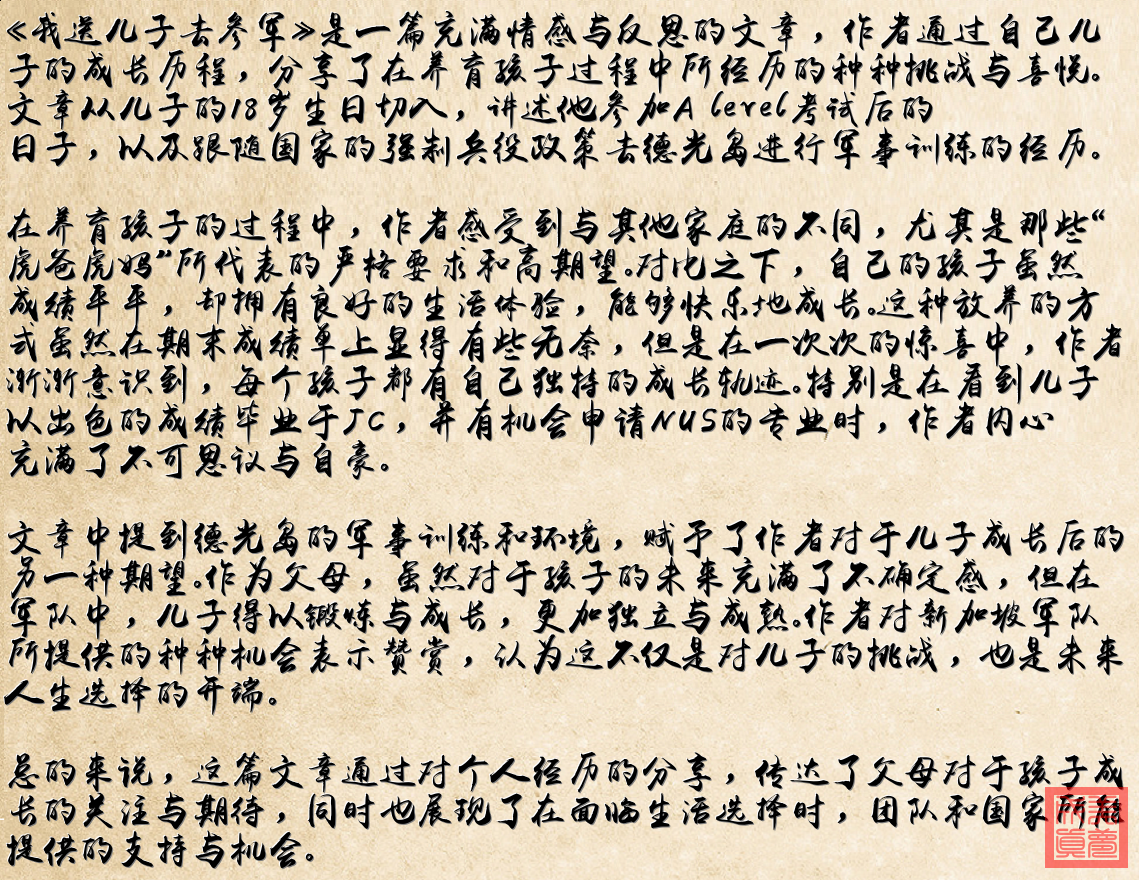 《我送儿子去参军》是一篇充满情感与反思的文章，作者通过自己儿
子的成长历程，分享了在养育孩子过程中所经历的种种挑战与喜悦。
文章从儿子的18岁生日切入，讲述他参加A level考试后的
日子，以及跟随国家的强制兵役政策去德光岛进行军事训练的经历。
在养育孩子的过程中，作者感受到与其他家庭的不同，尤其是那些“
虎爸虎妈”所代表的严格要求和高期望。对比之下，自己的孩子虽然
成绩平平，却拥有良好的生活体验，能够快乐地成长。这种放养的方
式虽然在期末成绩单上显得有些无奈，但是在一次次的惊喜中，作者
渐渐意识到，每个孩子都有自己独特的成长轨迹。特别是在看到儿子
以出色的成绩毕业于JC，并有机会申请NUS的专业时，作者内心
充满了不可思议与自豪。
文章中提到德光岛的军事训练和环境，赋予了作者对于儿子成长后的
另一种期望。作为父母，虽然对于孩子的未来充满了不确定感，但在
军队中，儿子得以锻炼与成长，更加独立与成熟。作者对新加坡军队
所提供的种种机会表示赞赏，认为这不仅是对儿子的挑战，也是未来
人生选择的开端。
总的来说，这篇文章通过对个人经历的分享，传达了父母对于孩子成
长的关注与期待，同时也展现了在面临生活选择时，团队和国家所能
提供的支持与机会。